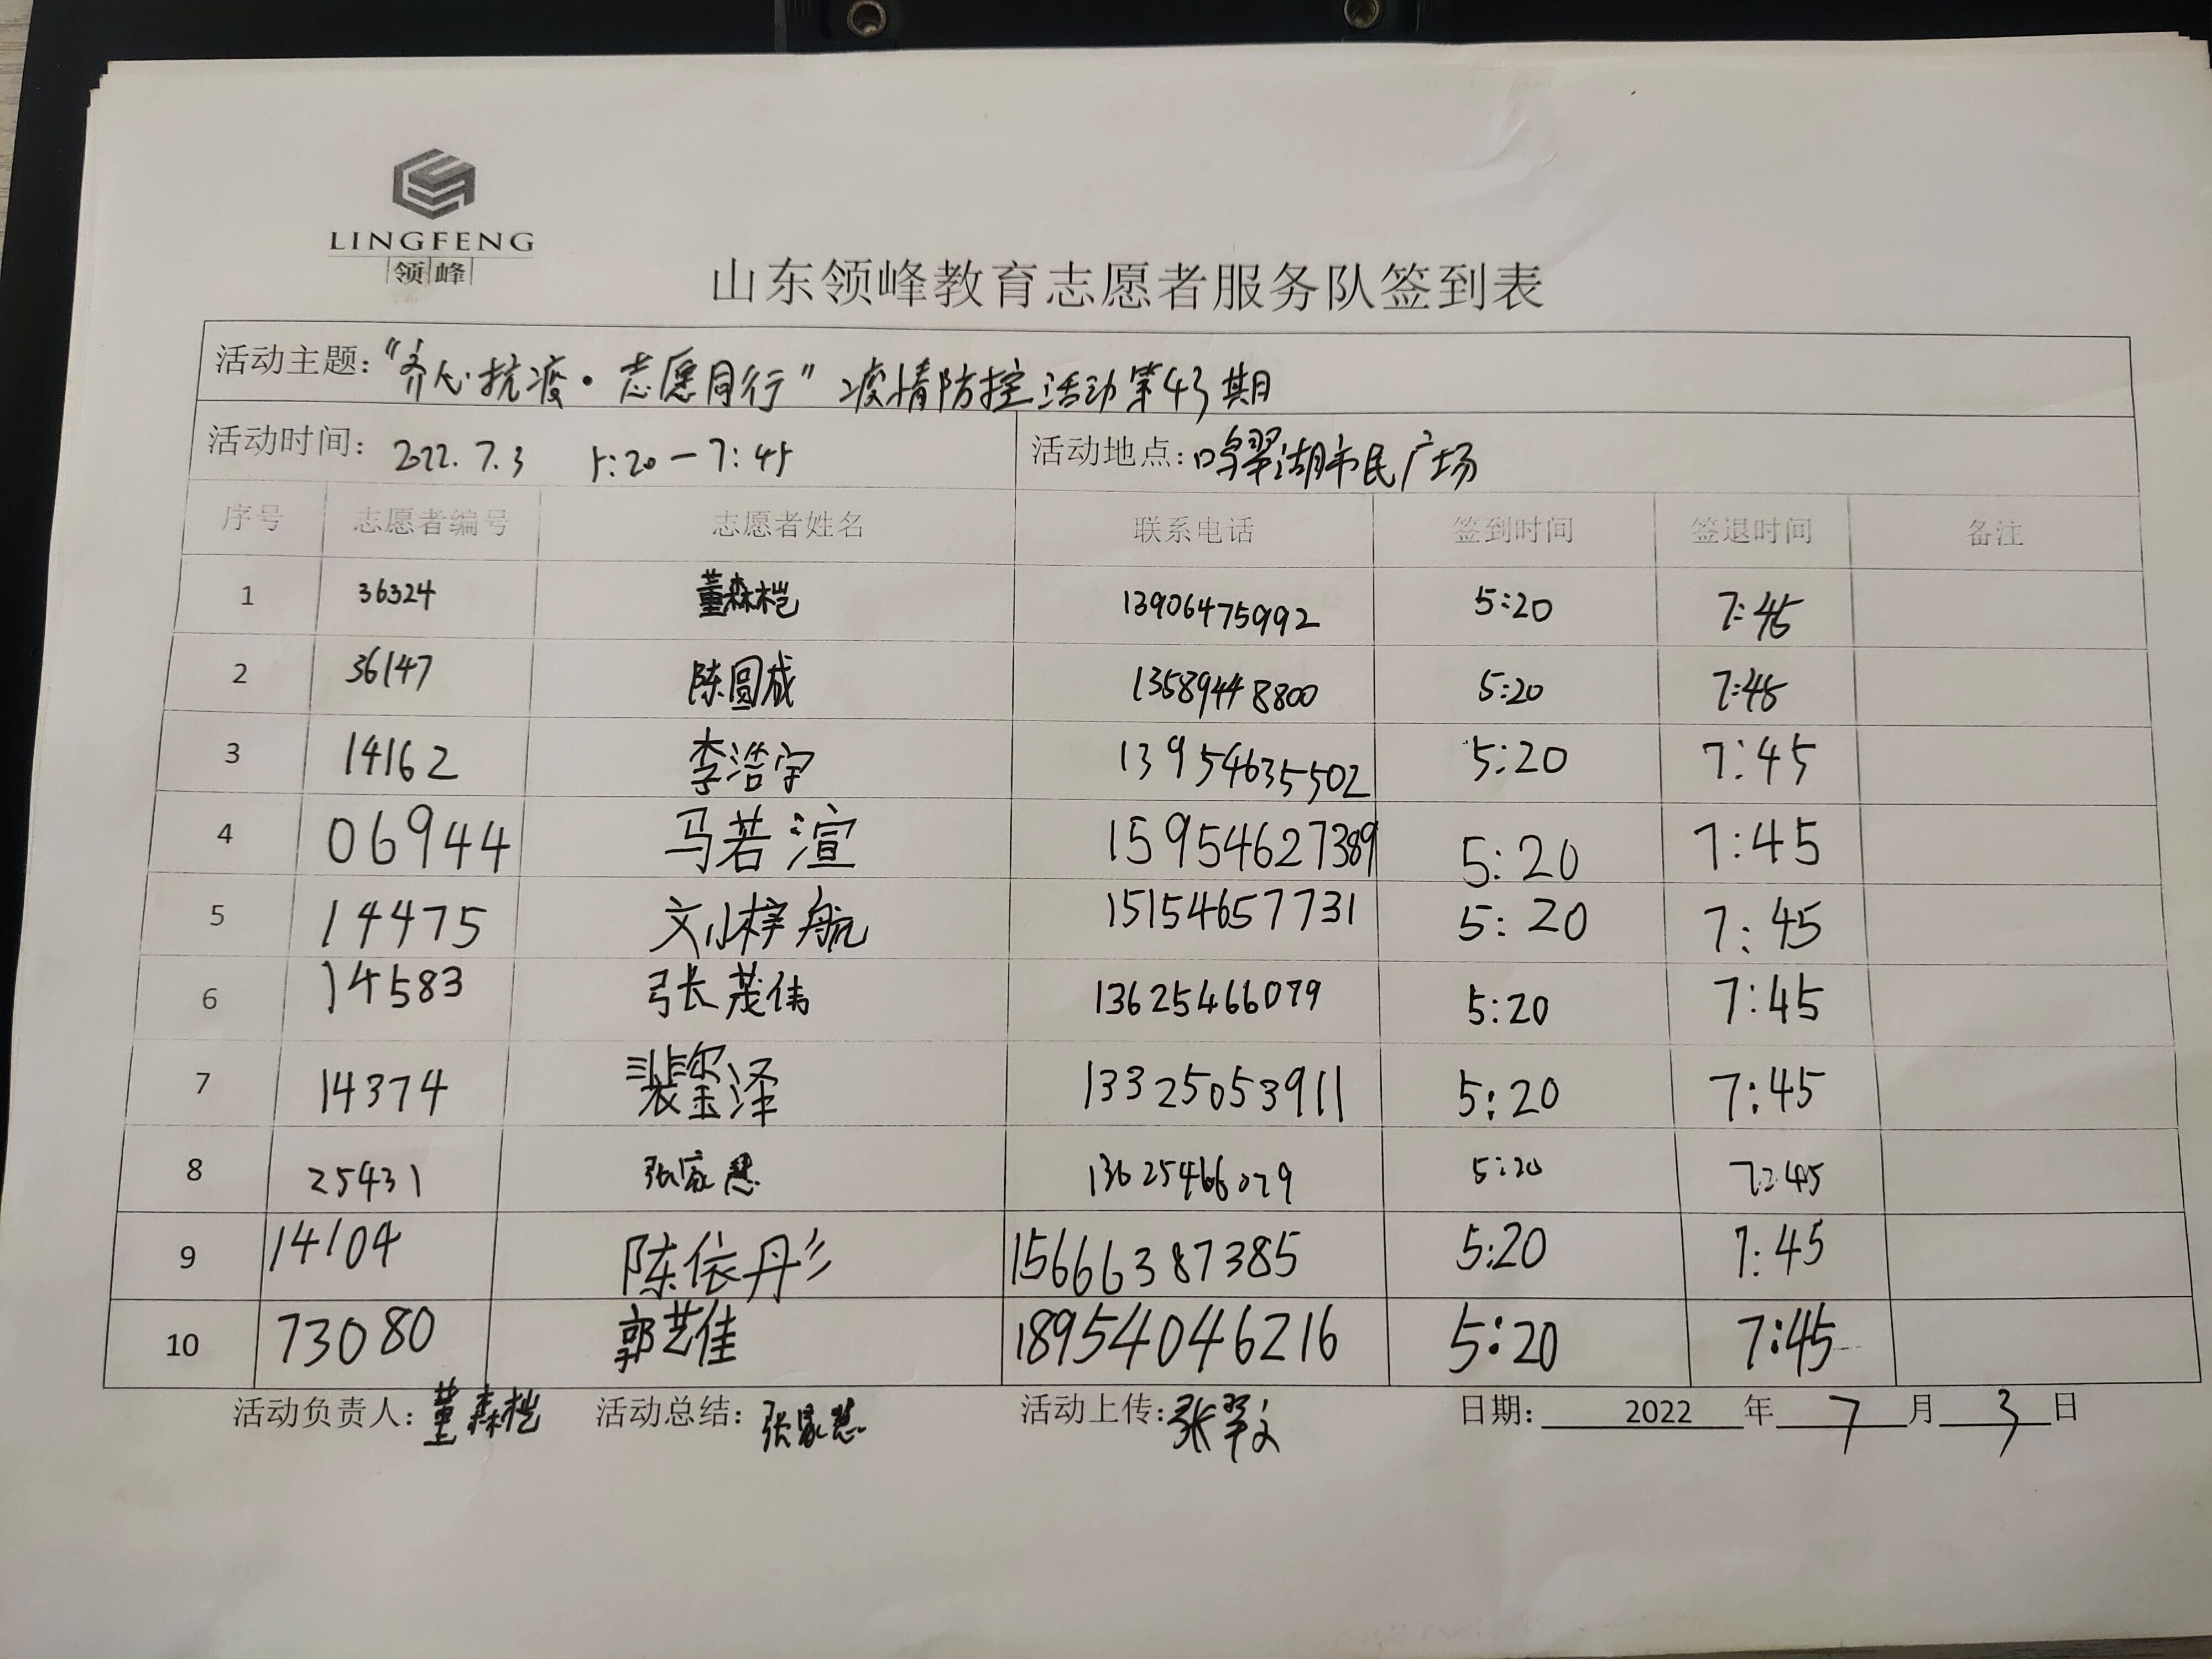 LINGFENG
领峰
山东领峰教育志愿者服务队签到表
活动主题：“齐心抗疫·志愿同行”疫情防控活动第43期
活动时间： 2022.7.3 5:20—7:45 活动地点：鸣翠湖市民广场
序号 志愿者编号 志愿者姓名 联系电话 签到时间 签退时间 备注
1 36324 董森桤 13906475992 5:20 7:45
2 36147 陈圆成 13589448800 5:20 7:45
3 14162 李浩宇 13954635502 5:20 7:45
4 06944 马若渲 15954627389 5:20 7:45
5 14475 刘梓航 15154657731 5:20 7:45
6 14583 张茂伟 13625466079 5:20 7:45
7 14374 裴玺泽 13325053911 5:20 7:45
8 25431 张家慧 13625466079 5:20 7:45
9 14104 陈依彤 15666387385 5:20 7:45
10 73080 郭艺佳 18954046216 5:20 7:45
活动负责人：董森桤 活动总结：张家慧 活动上传：张翠文 日期： 2022 年 7 月 3 日